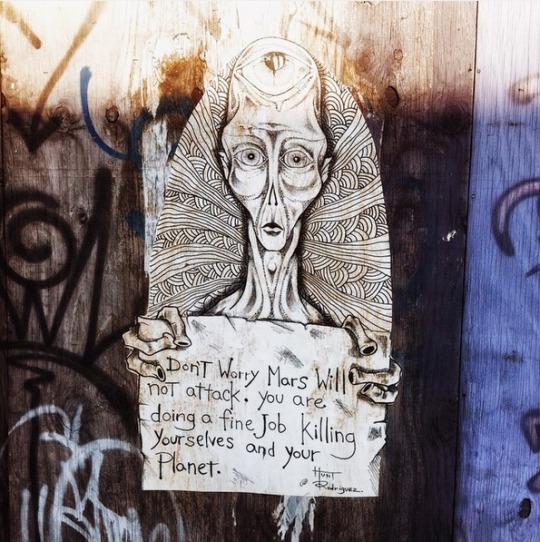 Don't Worry Mars Will
not attack. you are
doing a fine Job Killing
yourselves and your
Planet.
Hunt
@ Rodriguez.